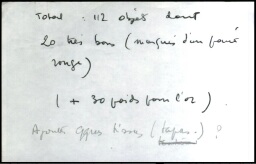 Total : 112 objets dont
20 très bons (marqués d'un point
rouge)
(+ 30 poids pour l'or)
Ajouter qques tissus (tapas.) ?